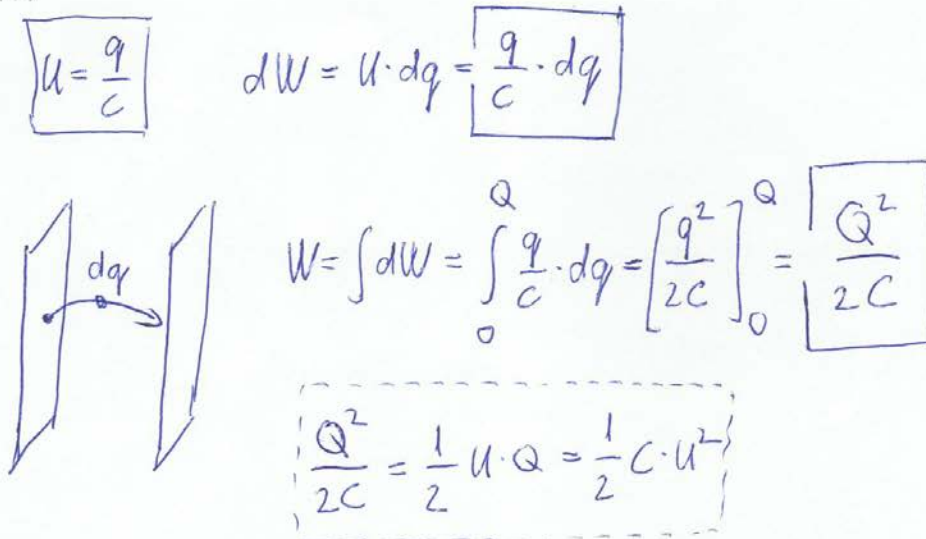 U = q/C    dW = U · dq = q/C · dq
dq
W = ∫ dW = ∫₀^Q q/C · dq = [q²/2C]₀^Q = Q²/2C
Q²/2C = 1/2 U · Q = 1/2 C · U²